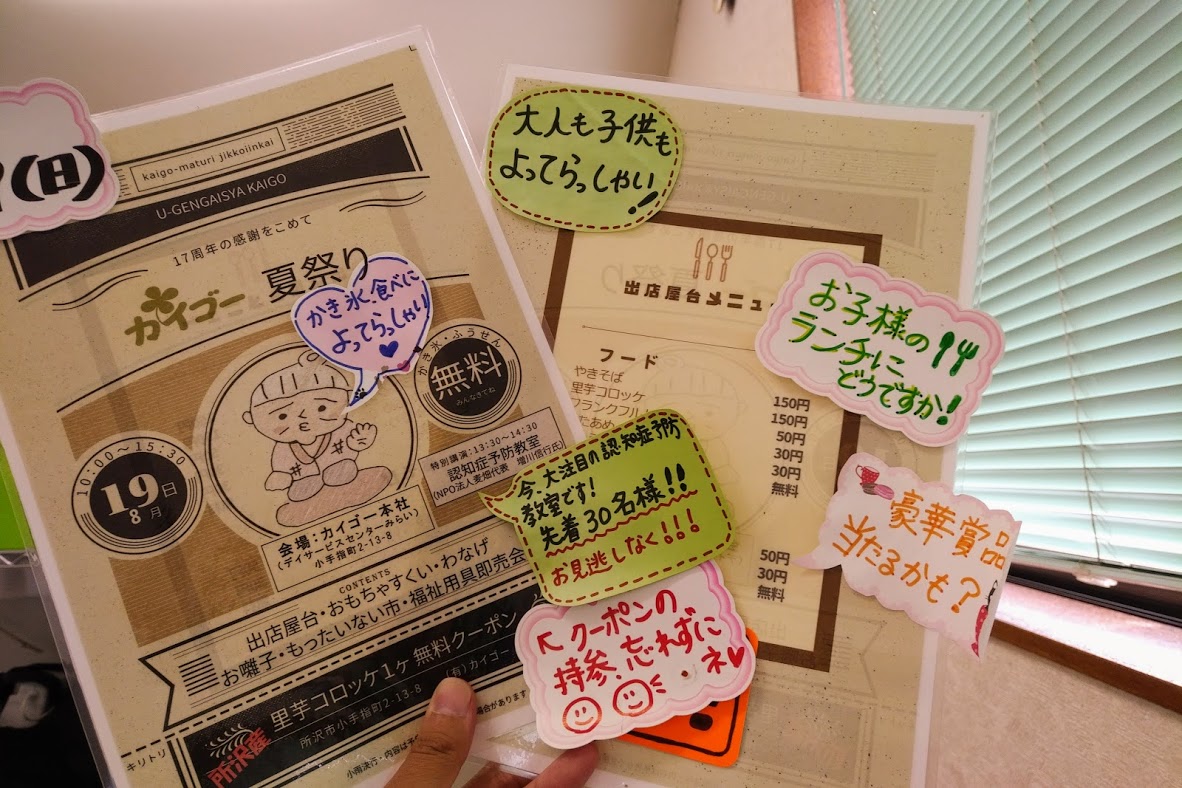 (日)
kaigo-maturi jikkoiinkai
U-GENGAISYA KAIGO
17周年の感謝をこめて
カイゴー
夏祭り
かき氷、食べに
よってらっしゃい
かき氷・ふうせん
無料
みんなきてね
10:00~15:30
19日
8月
特別講演:13:30~14:30
認知症予防教室
(NPO法人麦畑代表 増川信行氏)
会場:カイゴー本社
(デイサービスセンターみらい)
小手指町2-13-8
CONTENTS
出店屋台・おもちゃすくい・わなげ
お囃子・もったいない市・福祉用具即売会
キリトリ
所沢産
里芋コロッケ1ヶ無料クーポン
所沢市小手指町2-13-8 (有)カイゴー
小雨決行・内容は予
場合があります
大人も子供も
よってらっしゃい!!
出店屋台メニュ
フード
やきそば
150円
里芋コロッケ
150円
フランクフル
50円
たあめ
30円
30円
無料
50円
30円
無料
お子様の
ランチに
どうですか!
今、大注目の認知症予防
教室です!
先着30名様!!
お見逃しなく!!!
豪華賞品
当たるかも?
↖クーポンの
持参、忘れずに
ネ♥